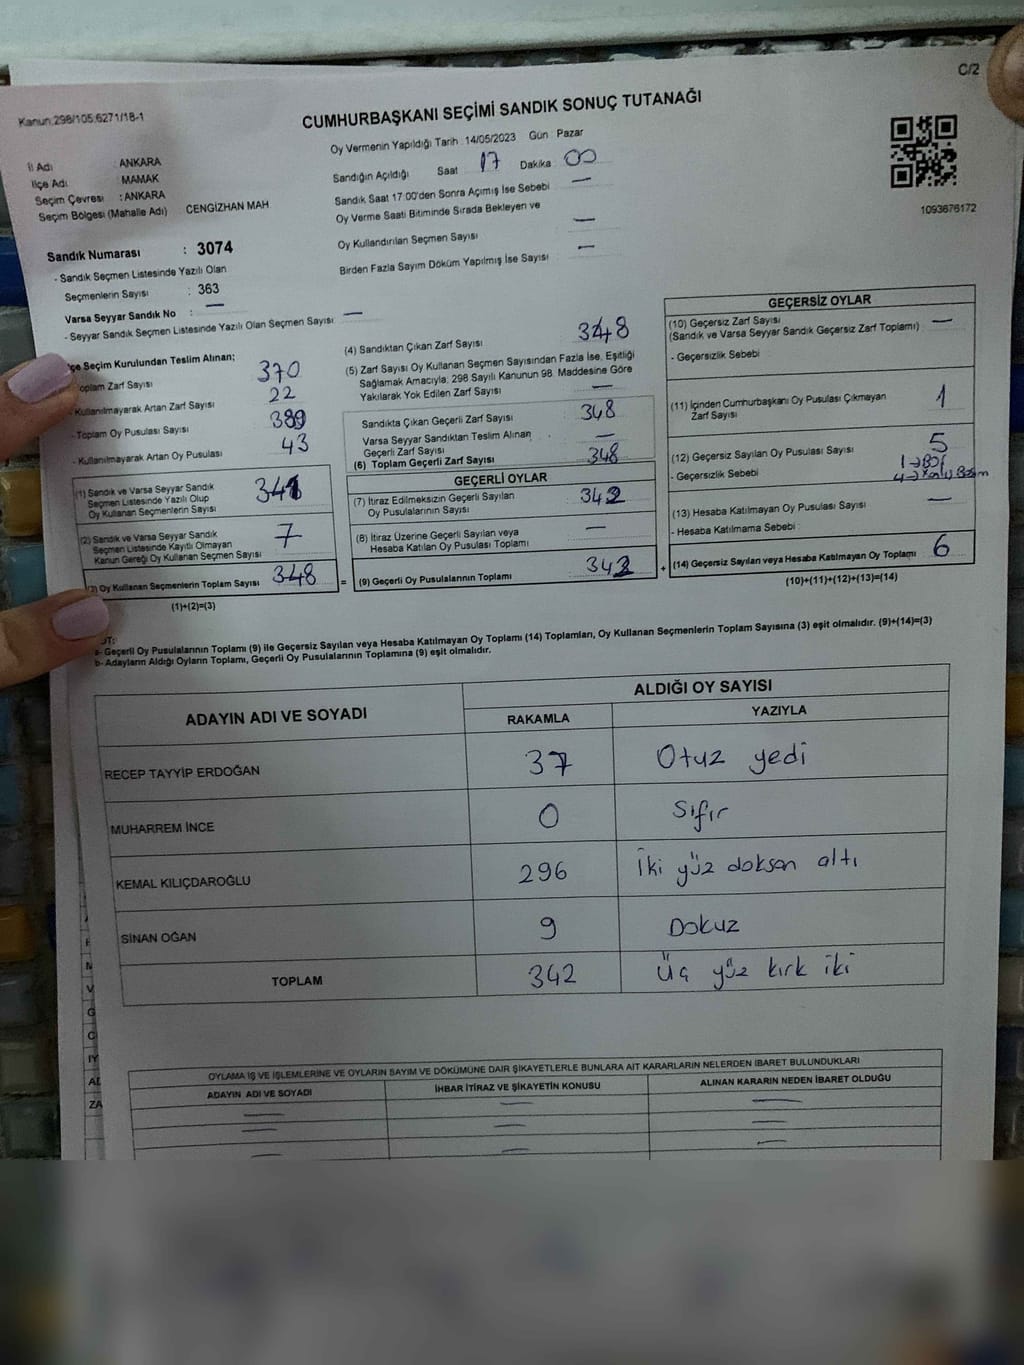 C/2
Kanun:298/105;6271/18-1
CUMHURBAŞKANI SEÇİMİ SANDIK SONUÇ TUTANAĞI
İl Adı : ANKARA
İlçe Adı : MAMAK
Seçim Çevresi : ANKARA
Seçim Bölgesi (Mahalle Adı) CENGİZHAN MAH.
Sandık Numarası : 3074
- Sandık Seçmen Listesinde Yazılı Olan
Seçmenlerin Sayısı : 363
Varsa Seyyar Sandık No : —
- Seyyar Sandık Seçmen Listesinde Yazılı Olan Seçmen Sayısı —
Oy Vermenin Yapıldığı Tarih : 14/05/2023 Gün Pazar
Sandığın Açıldığı Saat 17 Dakika 00
Sandık Saat 17:00'den Sonra Açımış İse Sebebi —
Oy Verme Saati Bitiminde Sırada Bekleyen ve
Oy Kullandırılan Seçmen Sayısı —
Birden Fazla Sayım Döküm Yapılmış İse Sayısı —
1093676172
İlçe Seçim Kurulundan Teslim Alınan;
Toplam Zarf Sayısı 370
- Kullanılmayarak Artan Zarf Sayısı 22
- Toplam Oy Pusulası Sayısı
- Kullanılmayarak Artan Oy Pusulası 43
(1) Sandık ve Varsa Seyyar Sandık
Seçmen Listesinde Yazılı Olup
Oy Kullanan Seçmenlerin Sayısı 341
(2) Sandık ve Varsa Seyyar Sandık
Seçmen Listesinde Kayıtlı Olmayan
Kanun Gereği Oy Kullanan Seçmen Sayısı 7
(3) Oy Kullanan Seçmenlerin Toplam Sayısı 348 =
(1)+(2)=(3)
(4) Sandıktan Çıkan Zarf Sayısı 348
(5) Zarf Sayısı Oy Kullanan Seçmen Sayısından Fazla İse, Eşitliği
Sağlamak Amacıyla; 298 Sayılı Kanunun 98. Maddesine Göre
Yakılarak Yok Edilen Zarf Sayısı —
Sandıkta Çıkan Geçerli Zarf Sayısı 348
Varsa Seyyar Sandıktan Teslim Alınan
Geçerli Zarf Sayısı —
(6) Toplam Geçerli Zarf Sayısı 348
GEÇERLİ OYLAR
(7) İtiraz Edilmeksizin Geçerli Sayılan
Oy Pusulalarının Sayısı 342
(8) İtiraz Üzerine Geçerli Sayılan veya
Hesaba Katılan Oy Pusulası Toplamı —
(9) Geçerli Oy Pusulalarının Toplamı 342 +
GEÇERSİZ OYLAR
(10) Geçersiz Zarf Sayısı —
(Sandık ve Varsa Seyyar Sandık Geçersiz Zarf Toplamı)
- Geçersizlik Sebebi
(11) İçinden Cumhurbaşkanı Oy Pusulası Çıkmayan
Zarf Sayısı 1
(12) Geçersiz Sayılan Oy Pusulası Sayısı 5
- Geçersizlik Sebebi 1→Boş
(13) Hesaba Katılmayan Oy Pusulası Sayısı —
- Hesaba Katılmama Sebebi :
(14) Geçersiz Sayılan veya Hesaba Katılmayan Oy Toplamı 6
(10)+(11)+(12)+(13)=(14)
NOT:
a- Geçerli Oy Pusulalarının Toplamı (9) ile Geçersiz Sayılan veya Hesaba Katılmayan Oy Toplamı (14) Toplamları, Oy Kullanan Seçmenlerin Toplam Sayısına (3) eşit olmalıdır. (9)+(14)=(3)
b- Adayların Aldığı Oyların Toplamı, Geçerli Oy Pusulalarının Toplamına (9) eşit olmalıdır.
ADAYIN ADI VE SOYADI
ALDIĞI OY SAYISI
RAKAMLA YAZIYLA
RECEP TAYYİP ERDOĞAN 37 Otuz yedi
MUHARREM İNCE 0 Sıfır
KEMAL KILIÇDAROĞLU 296 İki yüz doksan altı
SİNAN OĞAN 9 Dokuz
TOPLAM 342 Üç yüz kırk iki
OYLAMA İŞ VE İŞLEMLERİNE VE OYLARIN SAYIM VE DÖKÜMÜNE DAİR ŞİKAYETLERLE BUNLARA AİT KARARLARIN NELERDEN İBARET BULUNDUKLARI
ADAYIN ADI VE SOYADI İHBAR İTİRAZ VE ŞİKAYETİN KONUSU ALINAN KARARIN NEDEN İBARET OLDUĞU